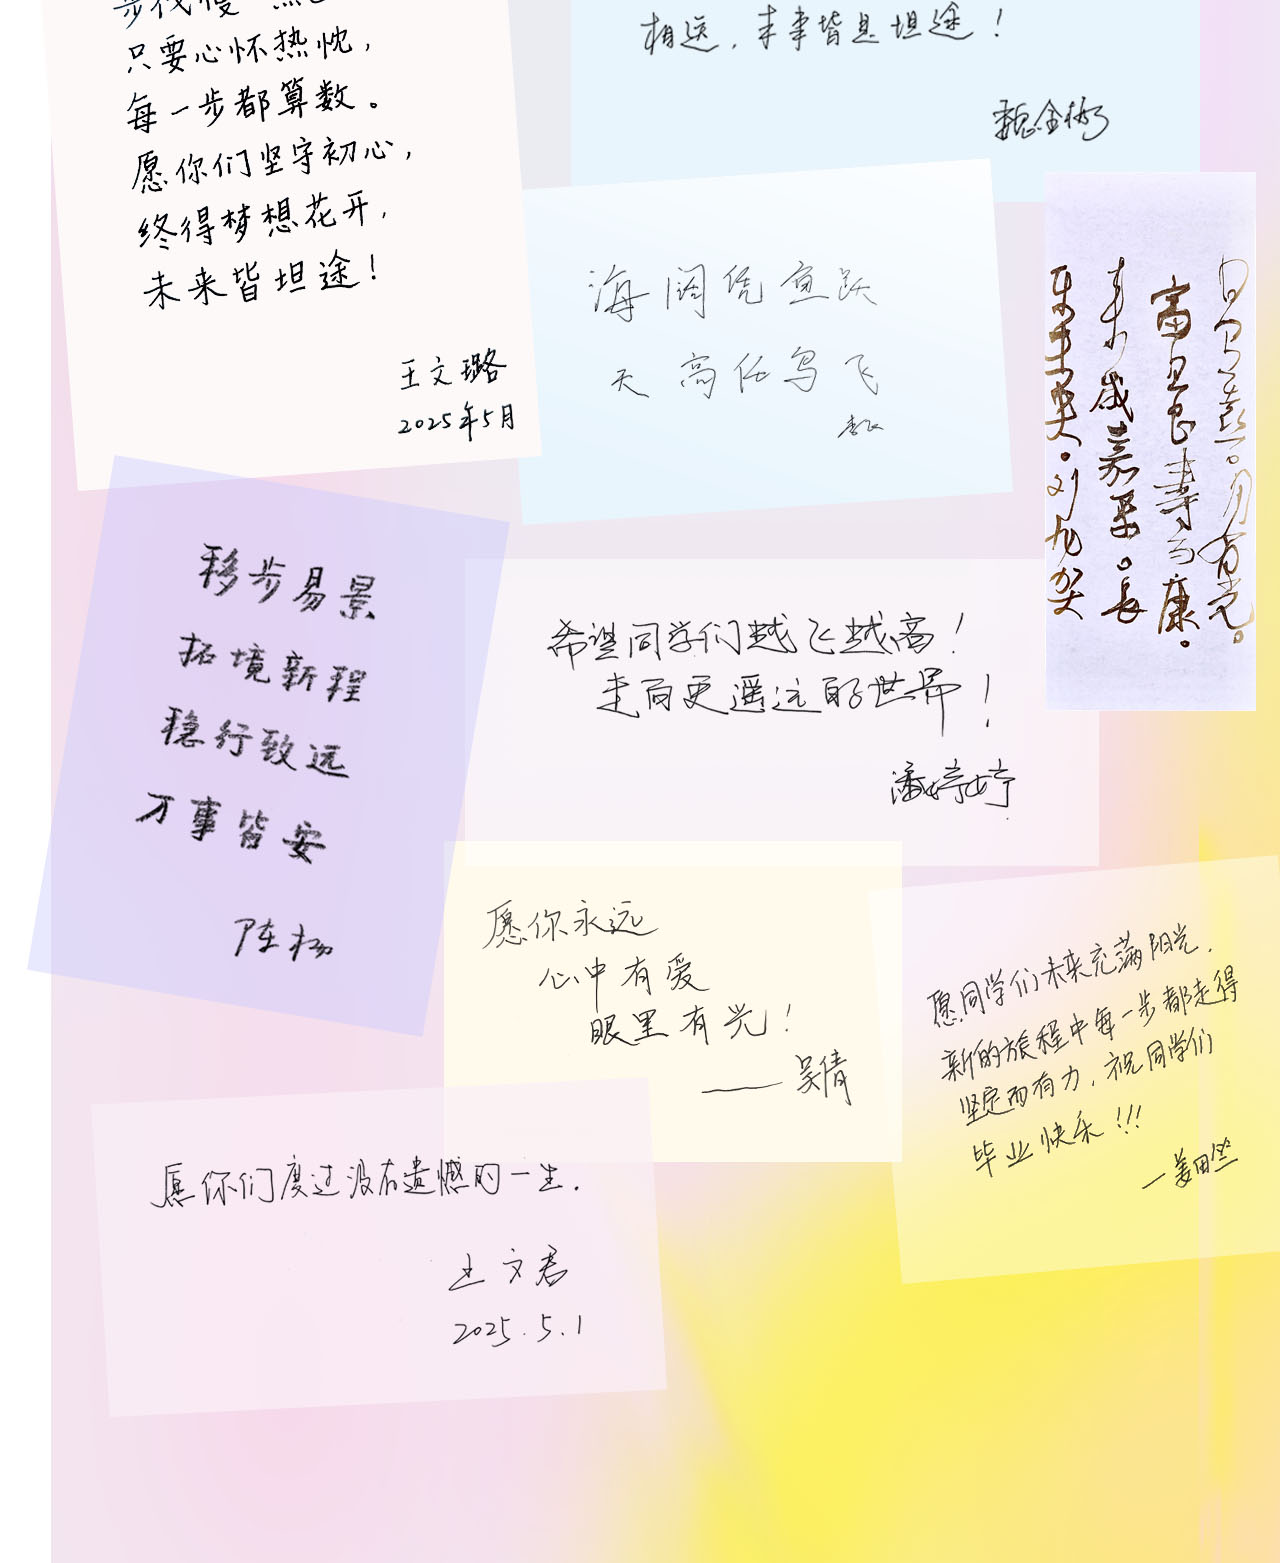 只要心怀热忱，
每一步都算数。
愿你们坚守初心，
终得梦想花开，
未来皆坦途！
王文璐
2025年5月
相送，未来皆是坦途！
魏金彬
海阔凭鱼跃
天高任鸟飞
日有熹。月有光。
富且昌寿而康。
新岁嘉平。长
乐未央。刘旭烎
移步易景
拓境新程
稳行致远
万事皆安
陈杨
希望同学们越飞越高！
走向更遥远的世界！
潘婷婷
愿你永远
心中有爱
眼里有光！
——吴倩
愿同学们未来充满阳光，
新的旅程中每一步都走得
坚定而有力，祝同学们
毕业快乐！！！
愿你们度过没有遗憾的一生.
王文君
2025.5.1